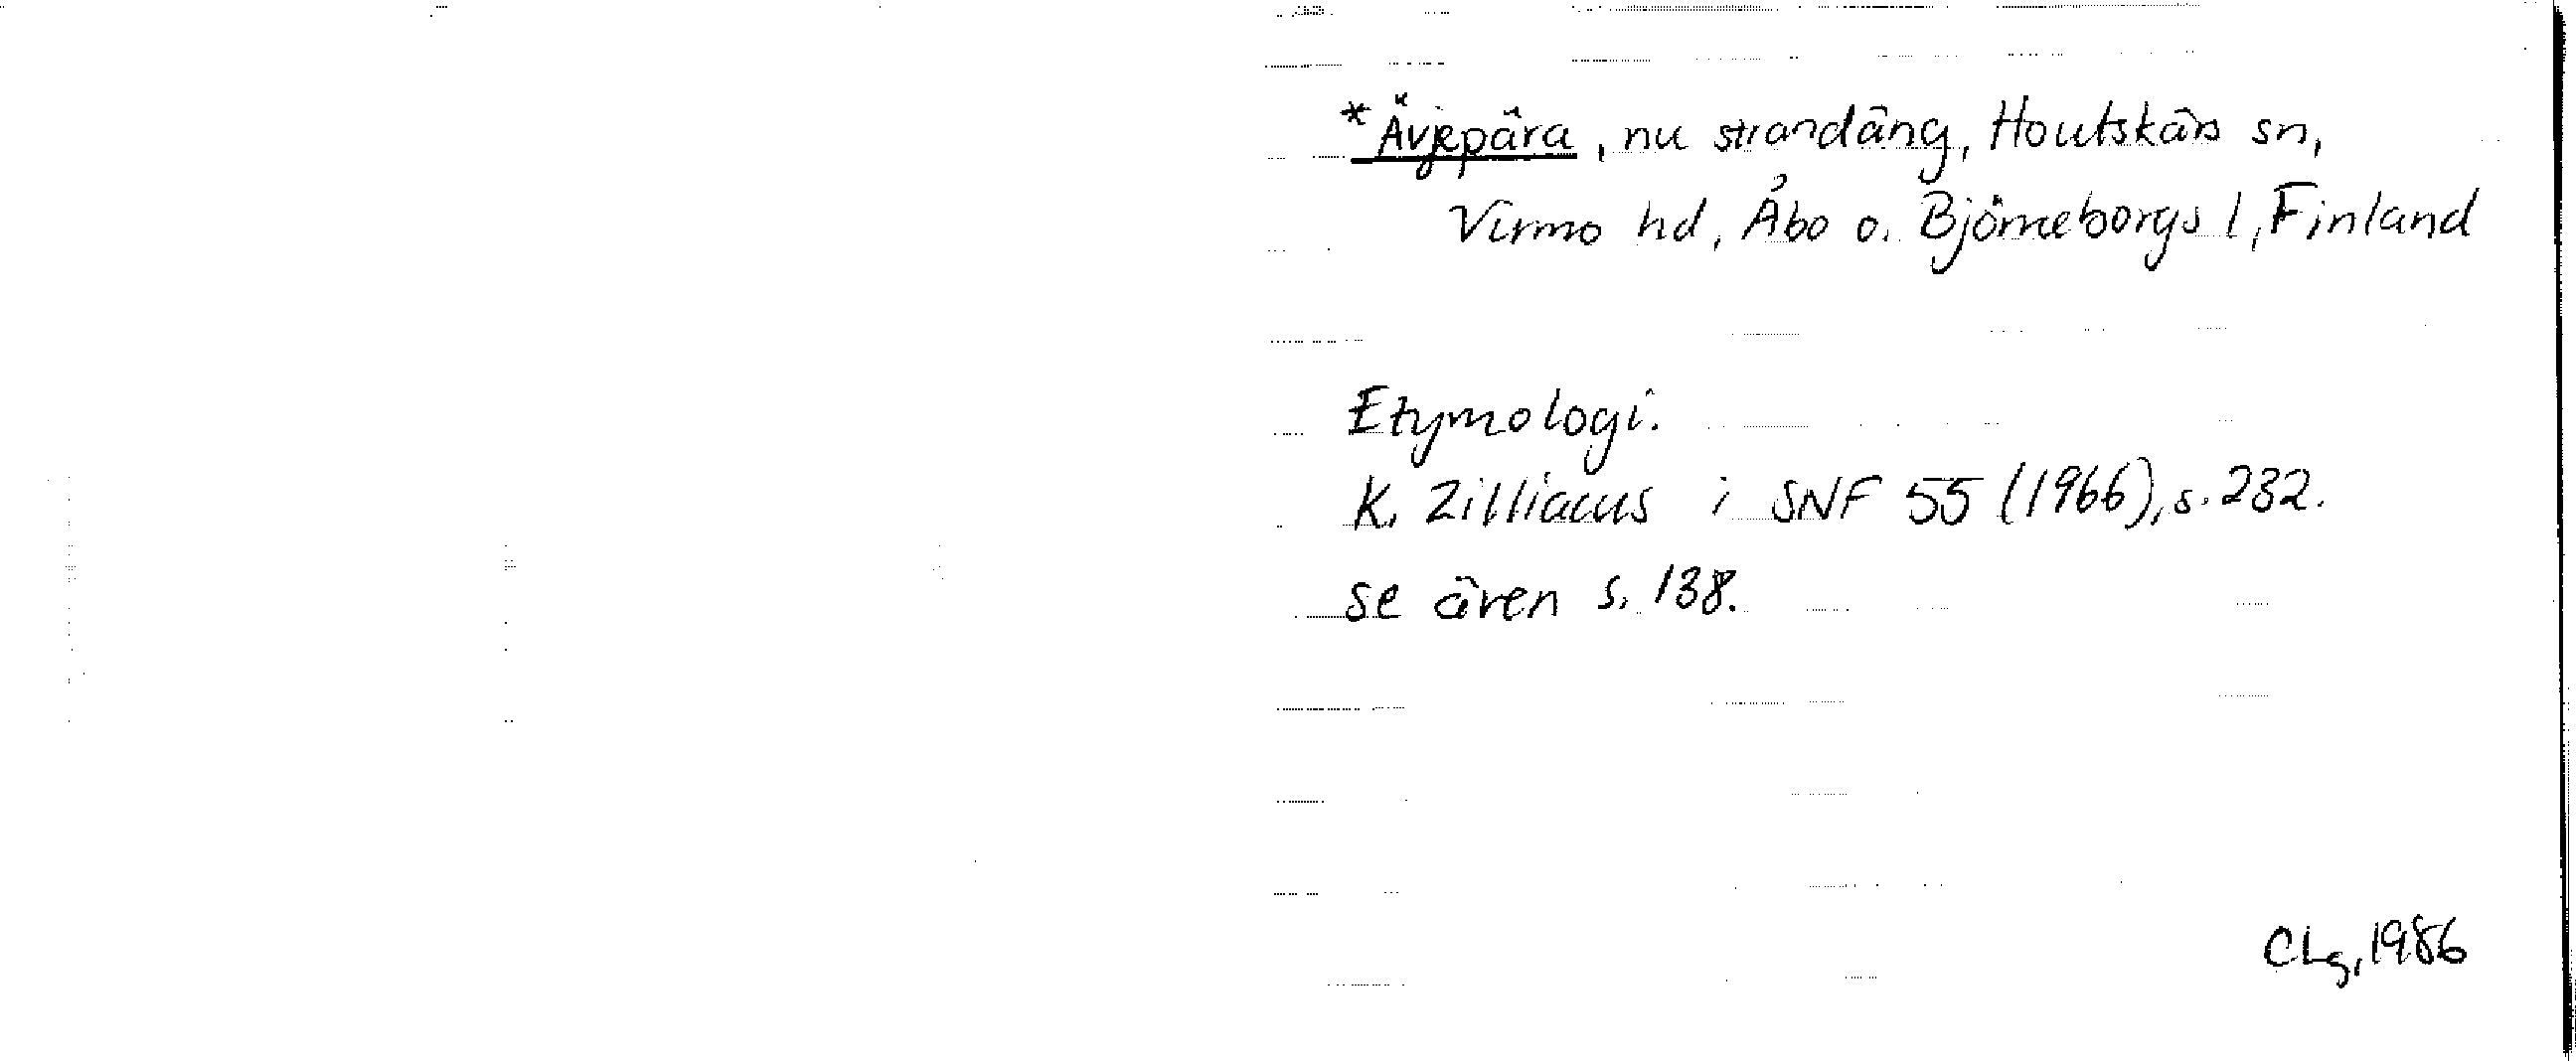 *Ävjepära, nu strandäng, Houtskärs sn,
Virmo hd, Åbo o. Björneborgs l, Finland
Etymologi.
K. Zilliacus i SNF 55 (1966), s. 232.
se även s. 138.
CLg, 1986